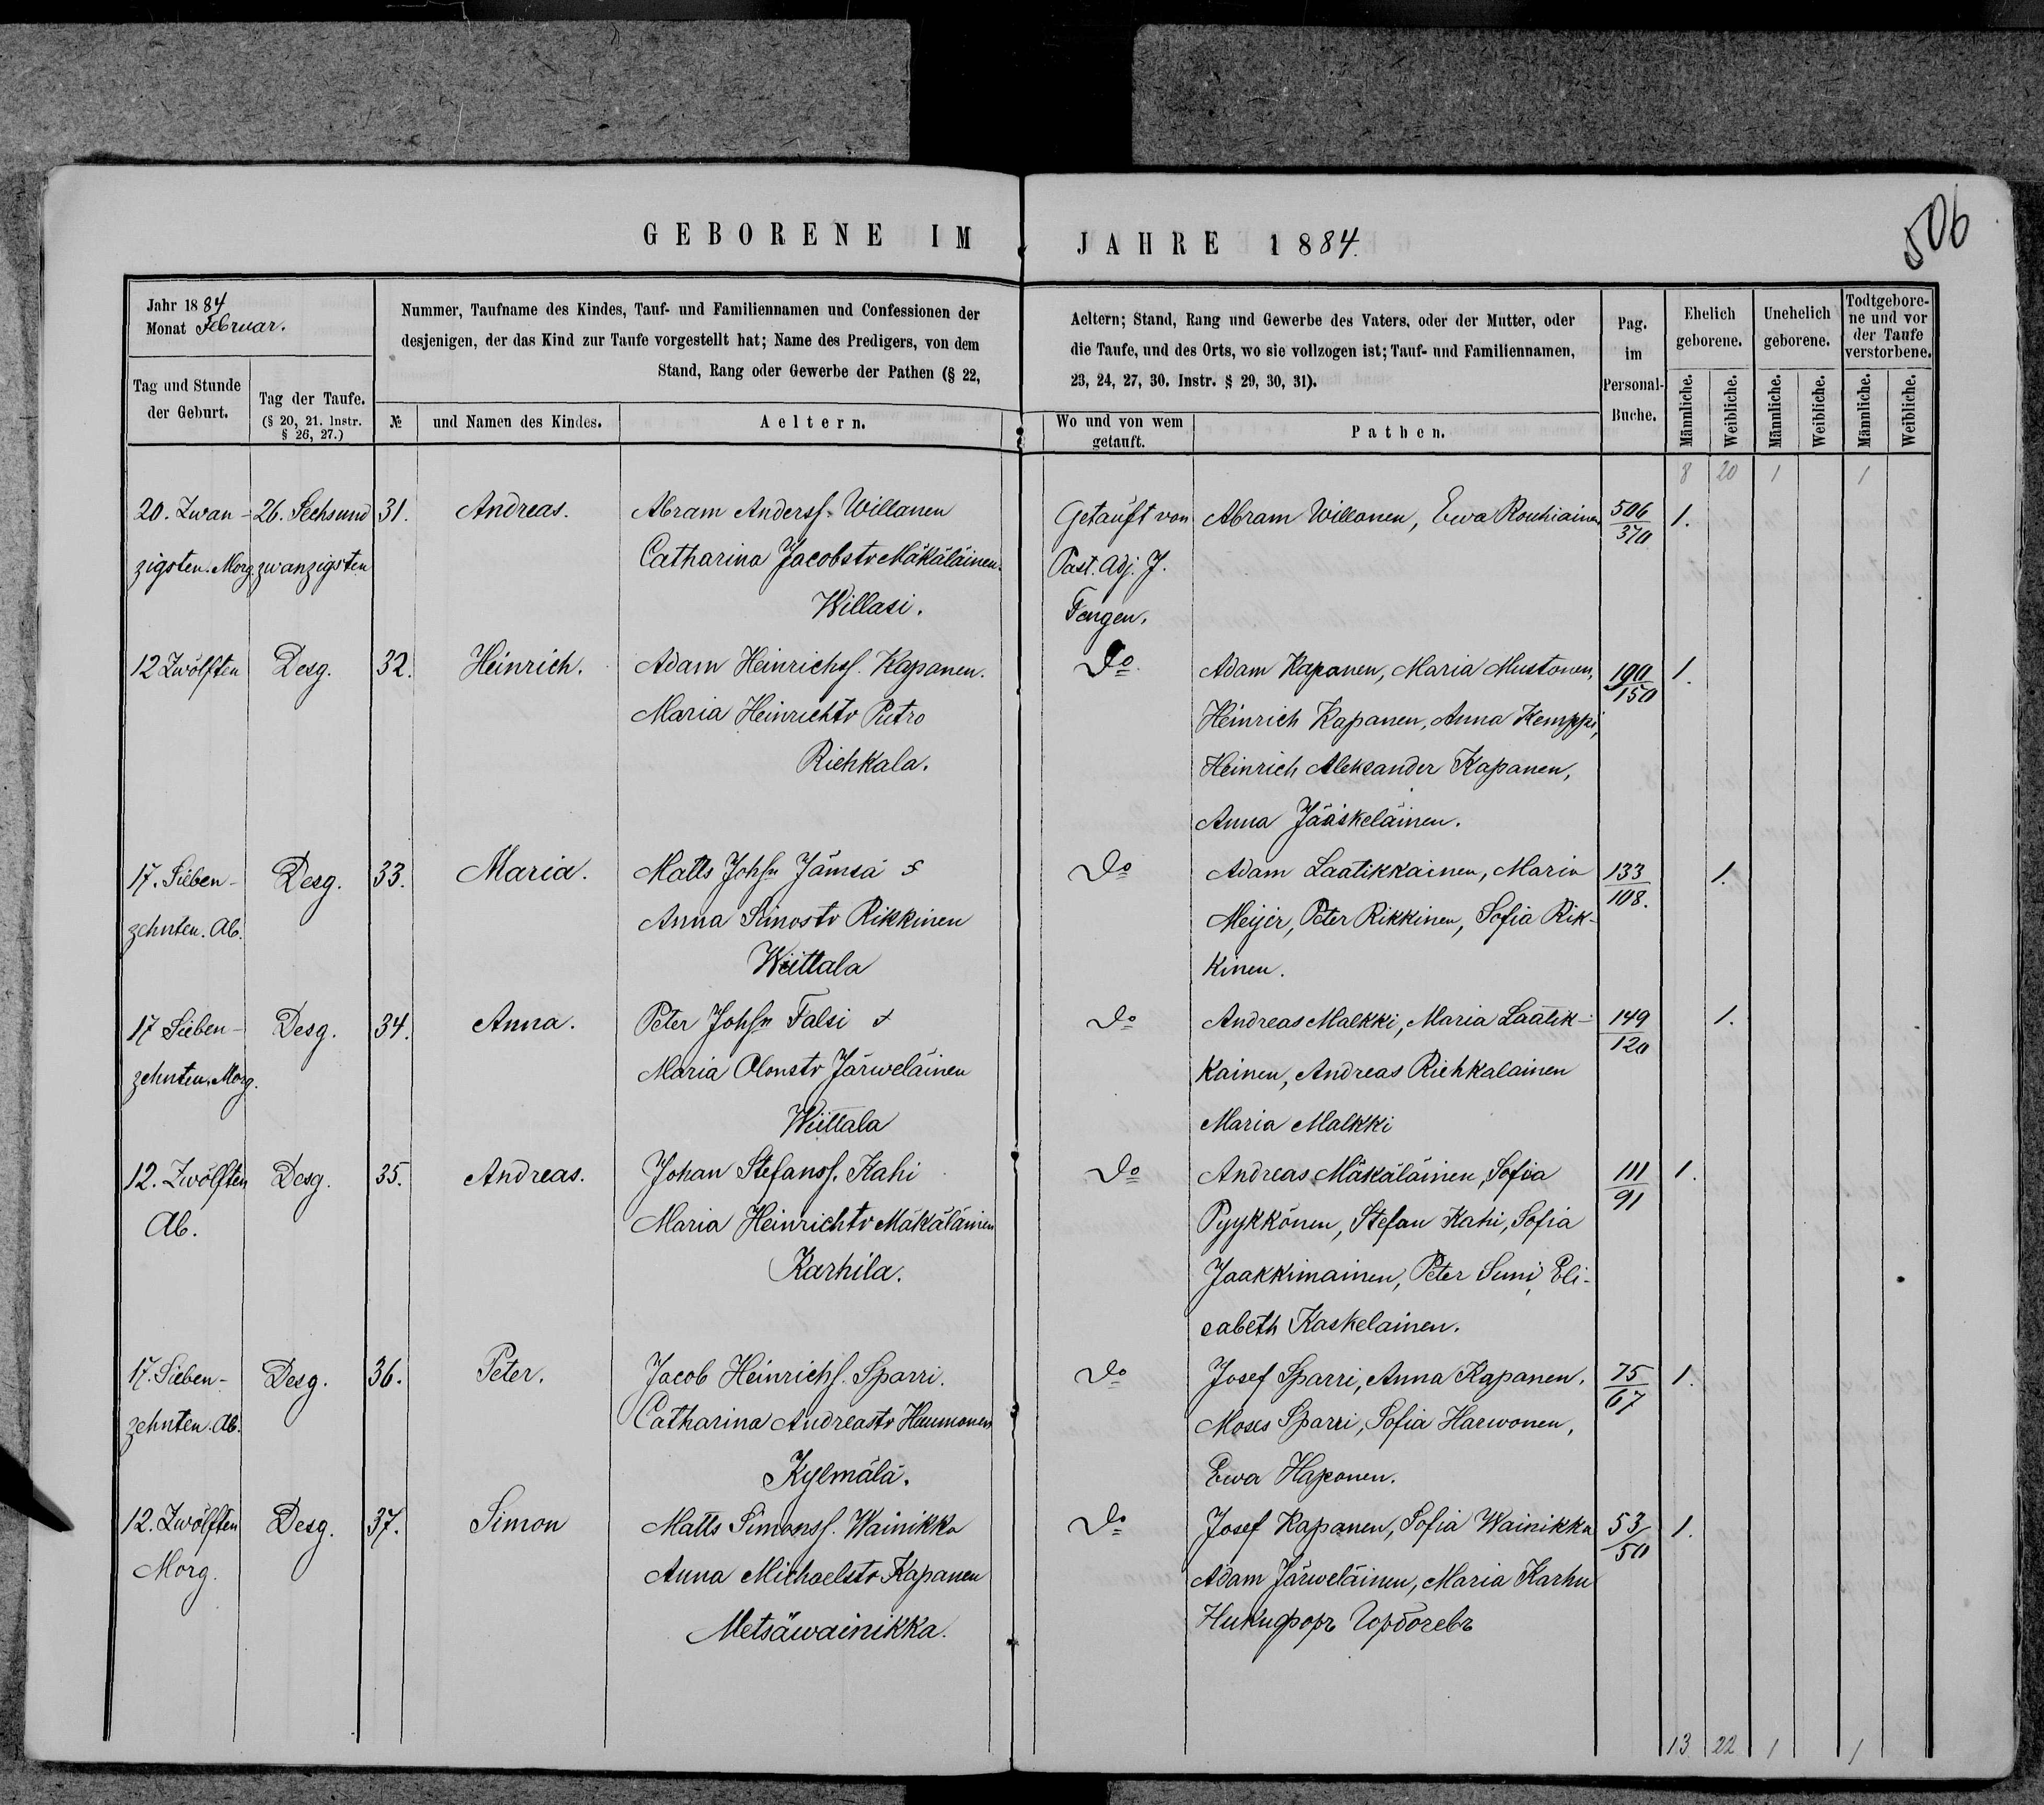 506
GEBORENE IM JAHRE 1884.
Jahr 1884
Monat Februar.
Tag und Stunde
der Geburt.
Tag der Taufe.
(§ 20, 21. Instr.
§ 26, 27.)
Nummer, Taufname des Kindes, Tauf- und Familiennamen und Confessionen der
desjenigen, der das Kind zur Taufe vorgestellt hat; Name des Predigers, von dem
Stand, Rang oder Gewerbe der Pathen (§ 22,
№
und Namen des Kindes.
Aeltern.
Aeltern; Stand, Rang und Gewerbe des Vaters, oder der Mutter, oder
die Taufe, und des Orts, wo sie vollzogen ist; Tauf- und Familiennamen,
23, 24, 27, 30. Instr. § 29, 30, 31).
Wo und von wem
getauft.
Pathen.
Pag.
im
Personal-
Buche.
Ehelich
geborene.
Unehelich
geborene.
Todtgebore-
ne und vor
der Taufe
verstorbene.
Männliche.
Weibliche.
Männliche.
Weibliche.
Männliche.
Weibliche.
8 20 1 1
20. Zwan- 26. Sechsund 31. Andreas. Abram Anderss. Willanen Getauft von Abram Willonen, Ewa Rouhiainen 506 1.
zigsten. Morg. zwanzigsten Catharina Jacobstr Mäkäläinen. Past. Adj. J. 370
Willasi. Fengen.
12 Zwölften Desg. 32. Heinrich. Adam Heinrichss. Kapanen. Do Adam Kapanen, Maria Mustonen, 190 1.
Maria Heinrichtr Putro Heinrich Kapanen, Anna Kemppi, 150
Riehkala. Heinrich Aleksander Kapanen,
Anna Jääskeläinen.
17. Sieben- Desg. 33. Maria. Matts Johsn Jämsä Do Adam Laatikkainen, Maria 133 1.
zehnten. Ab. Anna Simostr Rikkinen Meijer, Peter Rikkinen, Sofia Rik- 108.
Wiittala kinen.
17 Sieben- Desg. 34. Anna. Peter Johsn Falsi Do Andreas Malkki, Maria Laatik- 149 1.
zehnten. Morg. Maria Olonstr Järweläinen kainen, Andreas Riehkalainen 120
Wiittala Maria Malkki
12. Zwölften Desg. 35. Andreas. Johan Stefanss. Kahi Do Andreas Mäkäläinen, Sofia 111 1.
Ab. Maria Heinrichtr Mäkäläinen Pyykkönen, Stefan Kahi, Sofia 91
Karhila. Jaakkimainen, Peter Suni, Eli-
sabeth Kaskelainen.
17. Sieben- Desg. 36. Peter. Jacob Heinrichs. Sparri. Do Josef Sparri, Anna Kapanen, 75 1.
zehnten. Ab. Catharina Andreastr Haumonen Moses Sparri, Sofia Harwonen, 67
Kylmälä. Ewa Haponen.
12. Zwölften Desg. 37. Simon Matts Simonss. Wainikka Do Josef Kapanen, Sofia Wainikka 53 1.
Morg. Anna Michaelstr Kapanen Adam Järweläinen, Maria Karhu 50
Metsäwainikka. Никифоръ Горбочевъ
13 22 1 1